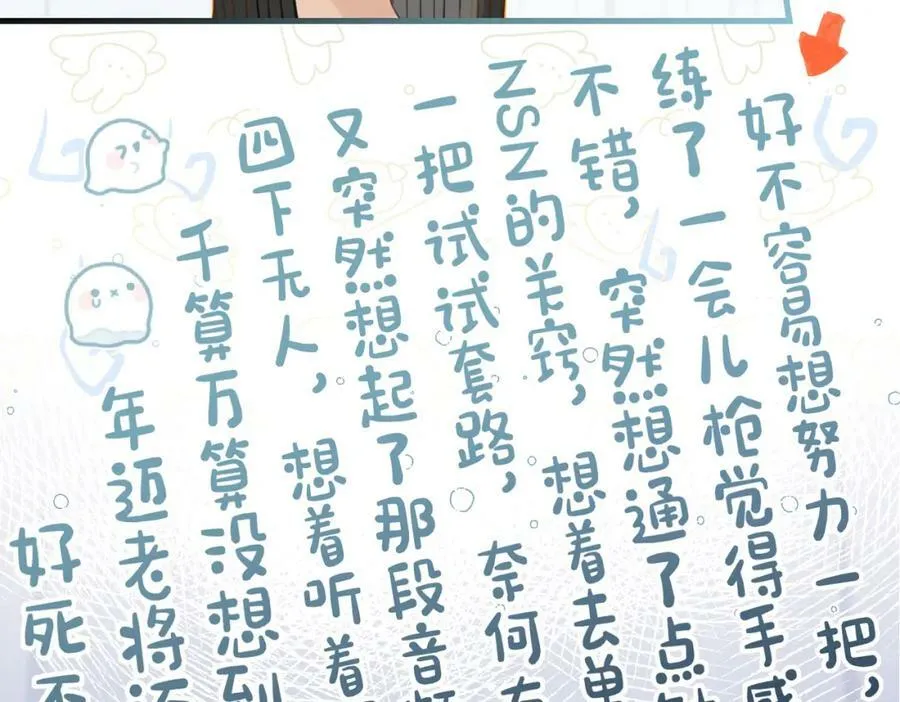 好不容易想努力一把，
练了一会儿枪觉得手感
不错，突然想通了点
NSN的关窍，想着去单
一把试试套路，奈何
又突然想起了那段音
四下无人，想着听着
千算万算没想到
年迈老将还
好死不